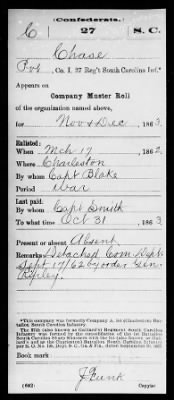 (Confederate.)
C 27 S. C.
Chase
Pvt, Co. I, 27 Reg't South Carolina Inf.*
Appears on
Company Muster Roll
of the organization named above,
for Nov & Dec, 1863
Enlisted:
When Mch 17, 1862
Where Charleston
By whom Capt Blake
Period War
Last paid:
By whom Capt Smith
To what time Oct 31, 1863
Present or absent Absent
Remarks: Detached Com. Dept
Sept 17/62 by order Gen
Ripley.
Book mark:
J Funk
(642) Copyist.